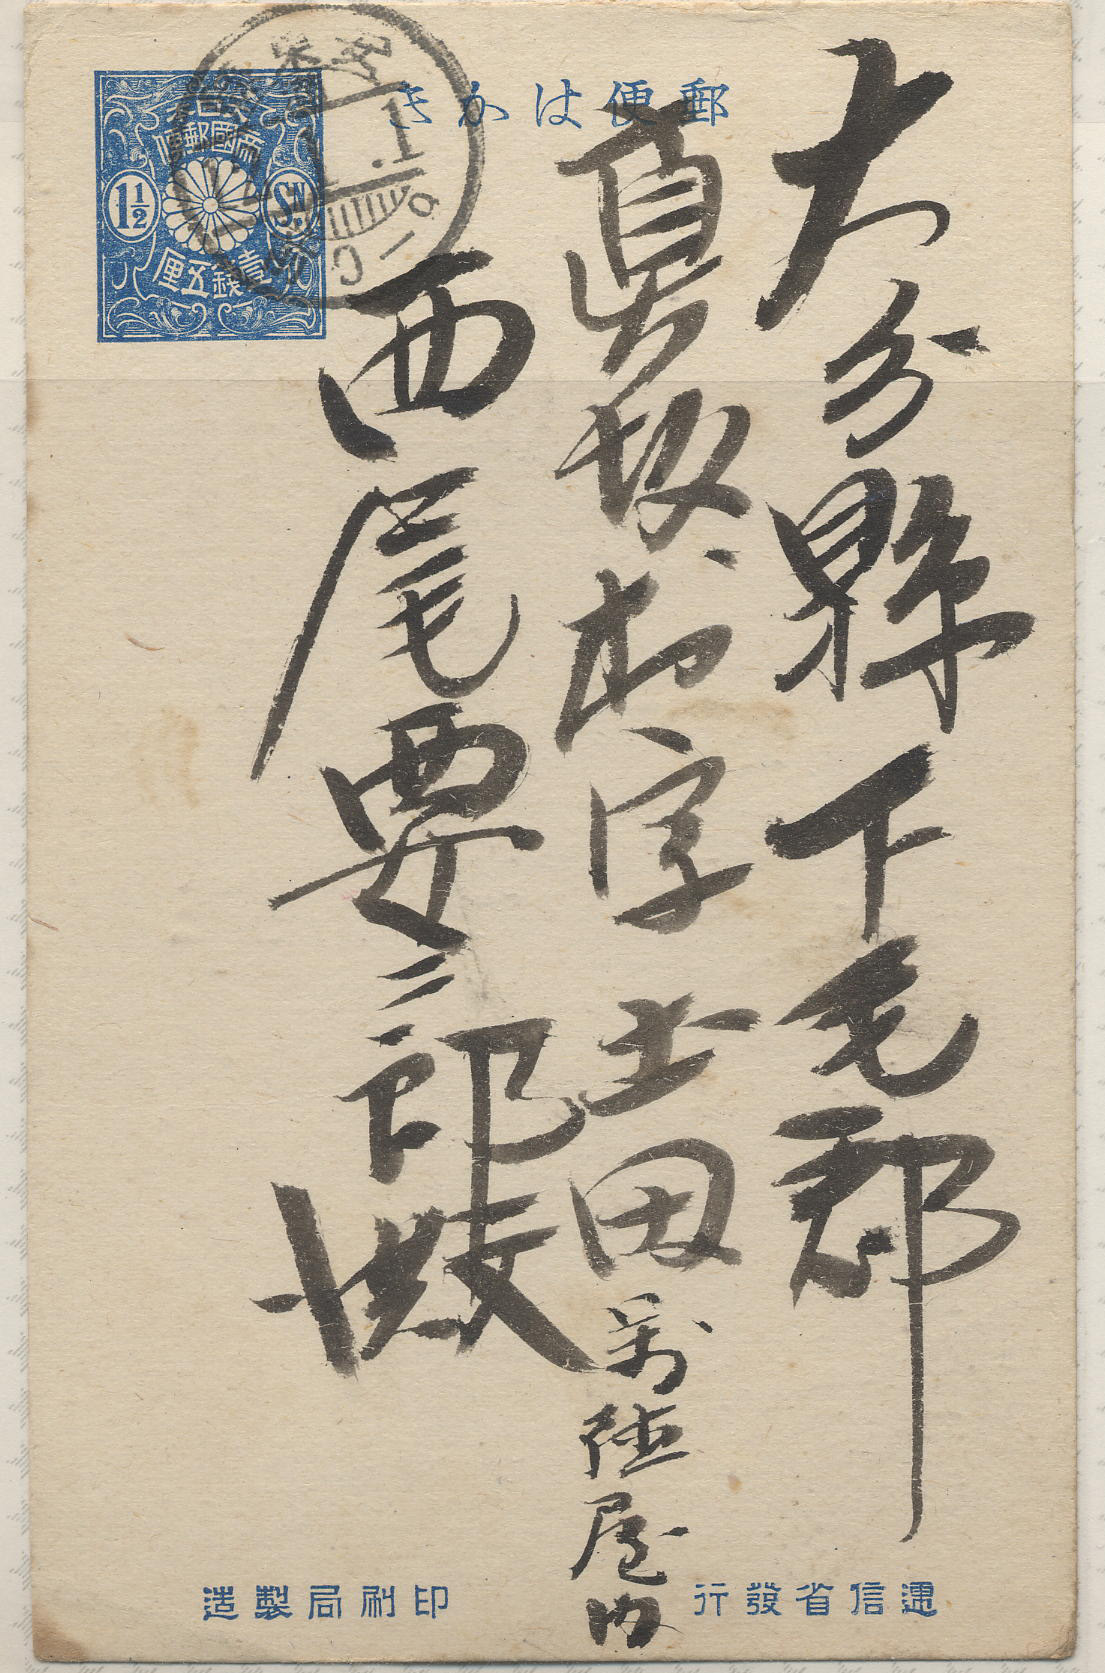 郵便はかき
帝國郵便
1½
SN.
壹錢五厘
1.1
大分縣下毛郡
真坂村字土田萬徳屋内
西尾要三郎殿
遞信省發行
印刷局製造